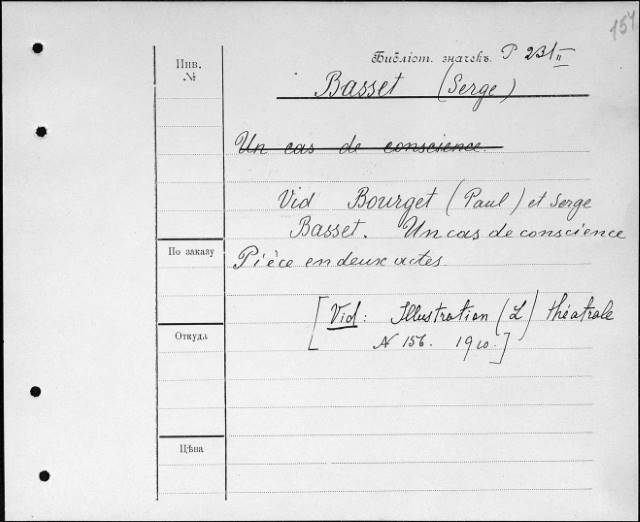 157.
Инв.
№
Библіот. значекъ. P 231 II
Basset (Serge)
Un cas de conscience.
Vid Bourget (Paul) et Serge
Basset. Un cas de conscience
По заказу
Pièce en deux actes.
[Vid: Illustration (L') théatrale
Откуда
№ 156. 1910.]
Цѣна